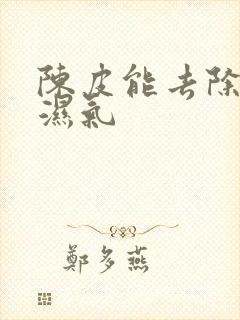 陳皮能去除
濕氣
鄭多燕